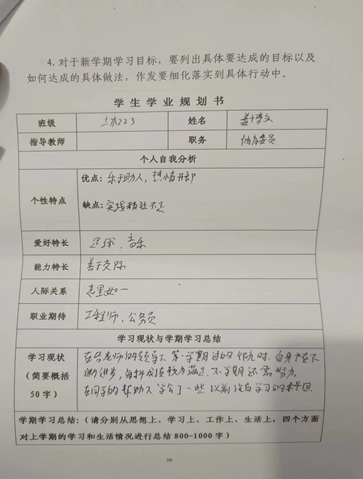 4. 对于新学期学习目标，要列出具体要达成的目标以及
如何达成的具体做法，作发要细化落实到具体行动中。
学生学业规划书
班级 土木223 姓名
指导教师 职务 体育委员
个人自我分析
个性特点
优点：乐于助人，热情开朗
缺点：实践经验不足
爱好特长 足球、音乐
能力特长 善于交际
人际关系 始如一
职业期待 工程师、公务员
学习现状与学期学习总结
学习现状
（简要概括
50字）
在 老师的领导下第一学期过的 ，自身在不
断进步，每科成绩 ，下学期还需努力
在同学的帮助下学会了一些以前没有学习的
学期学习总结：（请分别从思想上、学习上、工作上、生活上，四个方面
对上学期的学习和生活情况进行总结 800-1000 字）